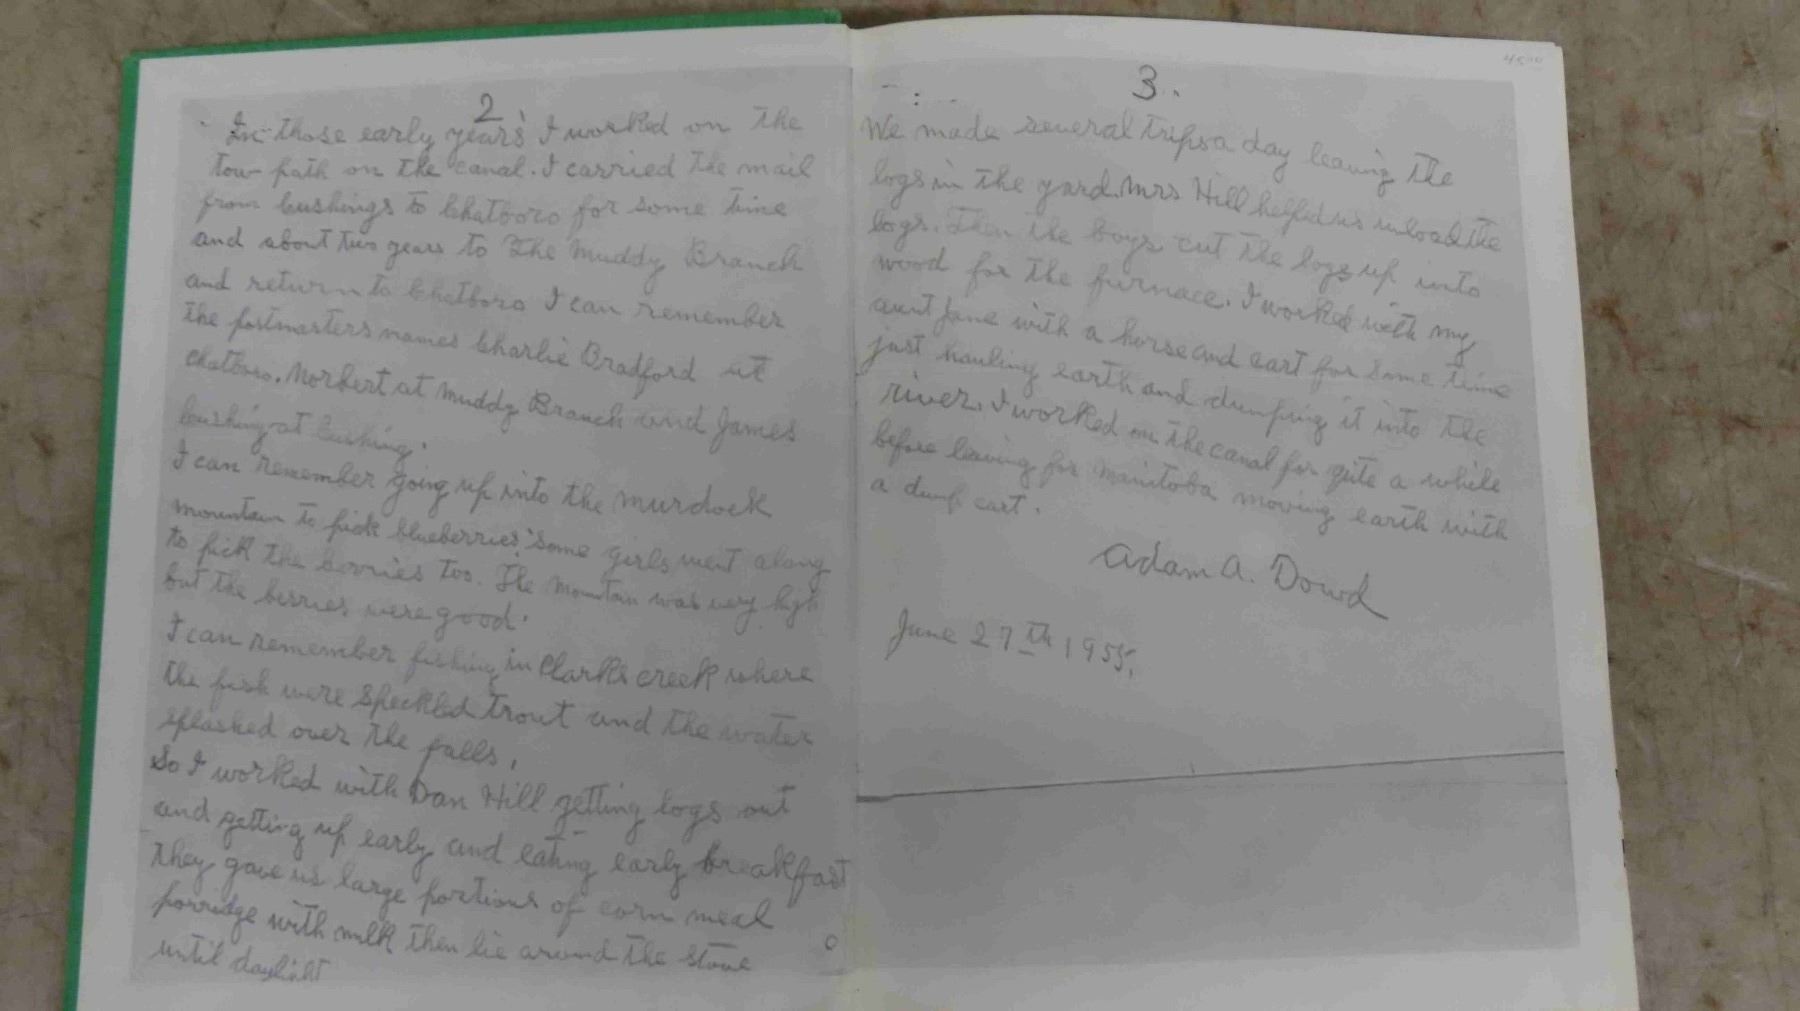 2
In those early years I worked on the
tow path on the canal. I carried the mail
from Cushings to Chatboro for some time
and about two years to the Muddy Branch
and return to Chatboro I can remember
the postmasters names Charlie Bradford at
Chatboro. Norbert at Muddy Branch and James
Cushing at Cushing.
I can remember going up into the murdock
mountain to pick blueberries. Some girls went along
to pick the berries too. The mountain was very high
but the berries were good.
I can remember fishing in Clarks creek where
the fish were speckled trout and the water
splashed over the falls.
So I worked with Dan Hill getting logs out
and getting up early and eating early breakfast
They gave us large portions of corn meal
porridge with milk then lie around the stove
until daylight
3.
We made several trips a day leaving the
logs in the yard. Mrs Hill helped us unload the
logs. Then the boys cut the logs up into
wood for the furnace. I worked with my
aunt Jane with a horse and cart for some time
just hauling earth and dumping it into the
river. I worked on the canal for qute a while
before leaving for manitoba moving earth with
a dump cart.
Adam A. Dowd
June 27th 1955.